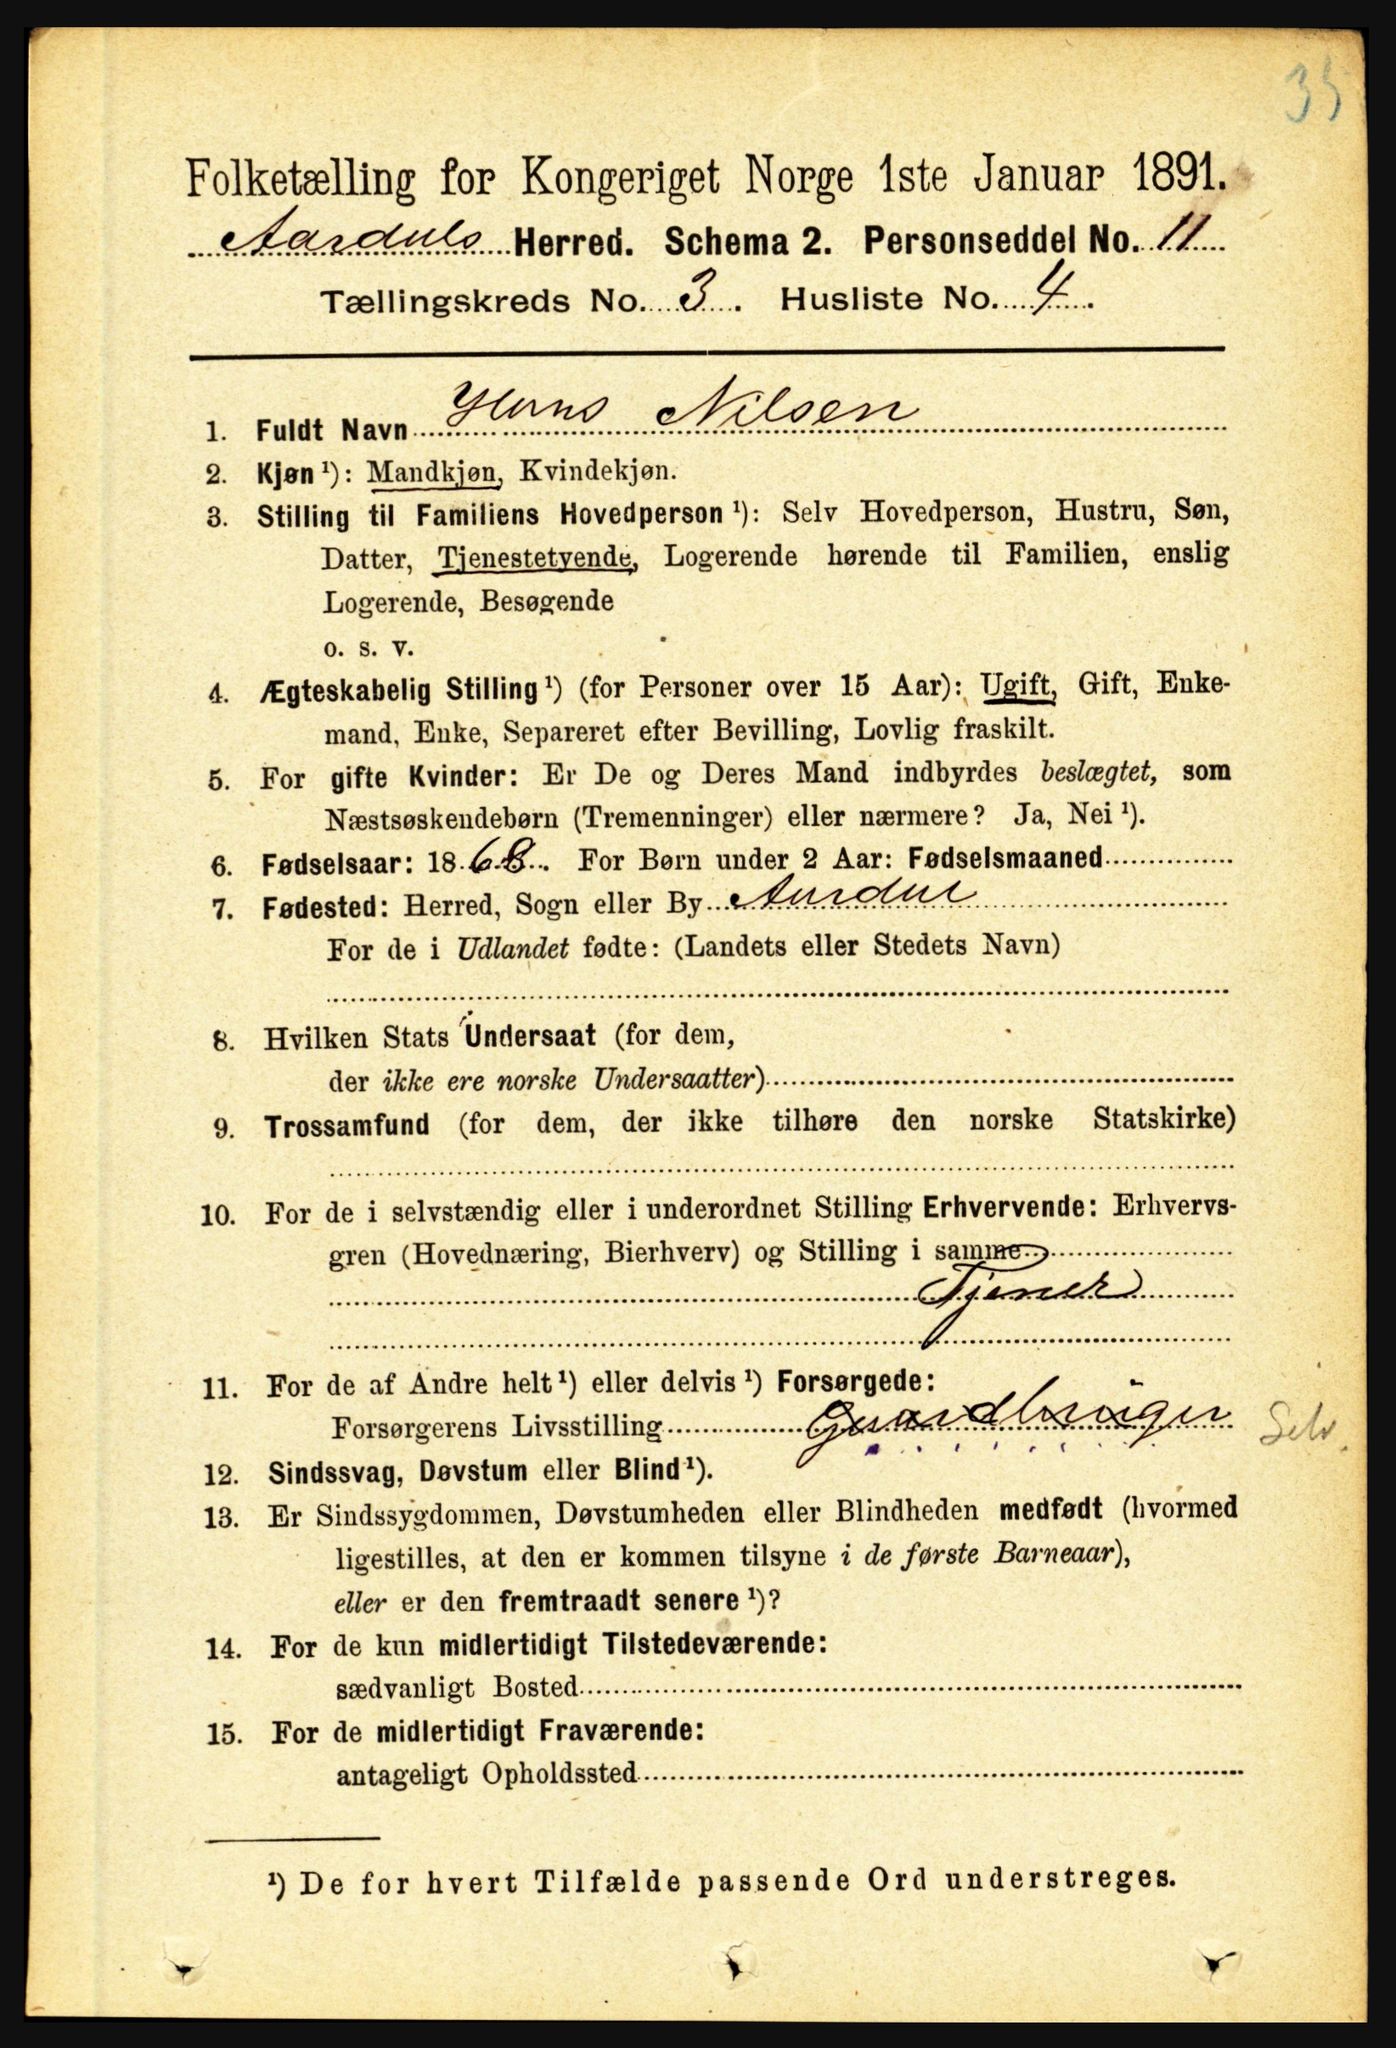 35
Folketælling for Kongeriget Norge 1ste Januar 1891.
Aardals Herred. Schema 2. Personseddel No. 11
Tællingskreds No. 3. Husliste No. 4.
1. Fuldt Navn Hans Nilsen
2. Kjøn ¹): Mandkjøn, Kvindekjøn.
3. Stilling til Familiens Hovedperson ¹): Selv Hovedperson, Hustru, Søn,
Datter, Tjenestetyende, Logerende hørende til Familien, enslig
Logerende, Besøgende
o. s. v.
4. Ægteskabelig Stilling ¹) (for Personer over 15 Aar): Ugift, Gift, Enke-
mand, Enke, Separeret efter Bevilling, Lovlig fraskilt.
5. For gifte Kvinder: Er De og Deres Mand indbyrdes beslægtet, som
Næstsøskendebørn (Tremenninger) eller nærmere? Ja, Nei ¹).
6. Fødselsaar: 1868. For Børn under 2 Aar: Fødselsmaaned
7. Fødested: Herred, Sogn eller By Aardal
For de i Udlandet fødte: (Landets eller Stedets Navn)
8. Hvilken Stats Undersaat (for dem,
der ikke ere norske Undersaatter)
9. Trossamfund (for dem, der ikke tilhøre den norske Statskirke)
10. For de i selvstændig eller i underordnet Stilling Erhvervende: Erhvervs-
gren (Hovednæring, Bierhverv) og Stilling i samme
Tjener
11. For de af Andre helt ¹) eller delvis ¹) Forsørgede:
Forsørgerens Livsstilling Gaardbruger Selv.
12. Sindssvag, Døvstum eller Blind ¹).
13. Er Sindssygdommen, Døvstumheden eller Blindheden medfødt (hvormed
ligestilles, at den er kommen tilsyne i de første Barneaar),
eller er den fremtraadt senere ¹)?
14. For de kun midlertidigt Tilstedeværende:
sædvanligt Bosted
15. For de midlertidigt Fraværende:
antageligt Opholdssted
¹) De for hvert Tilfælde passende Ord understreges.